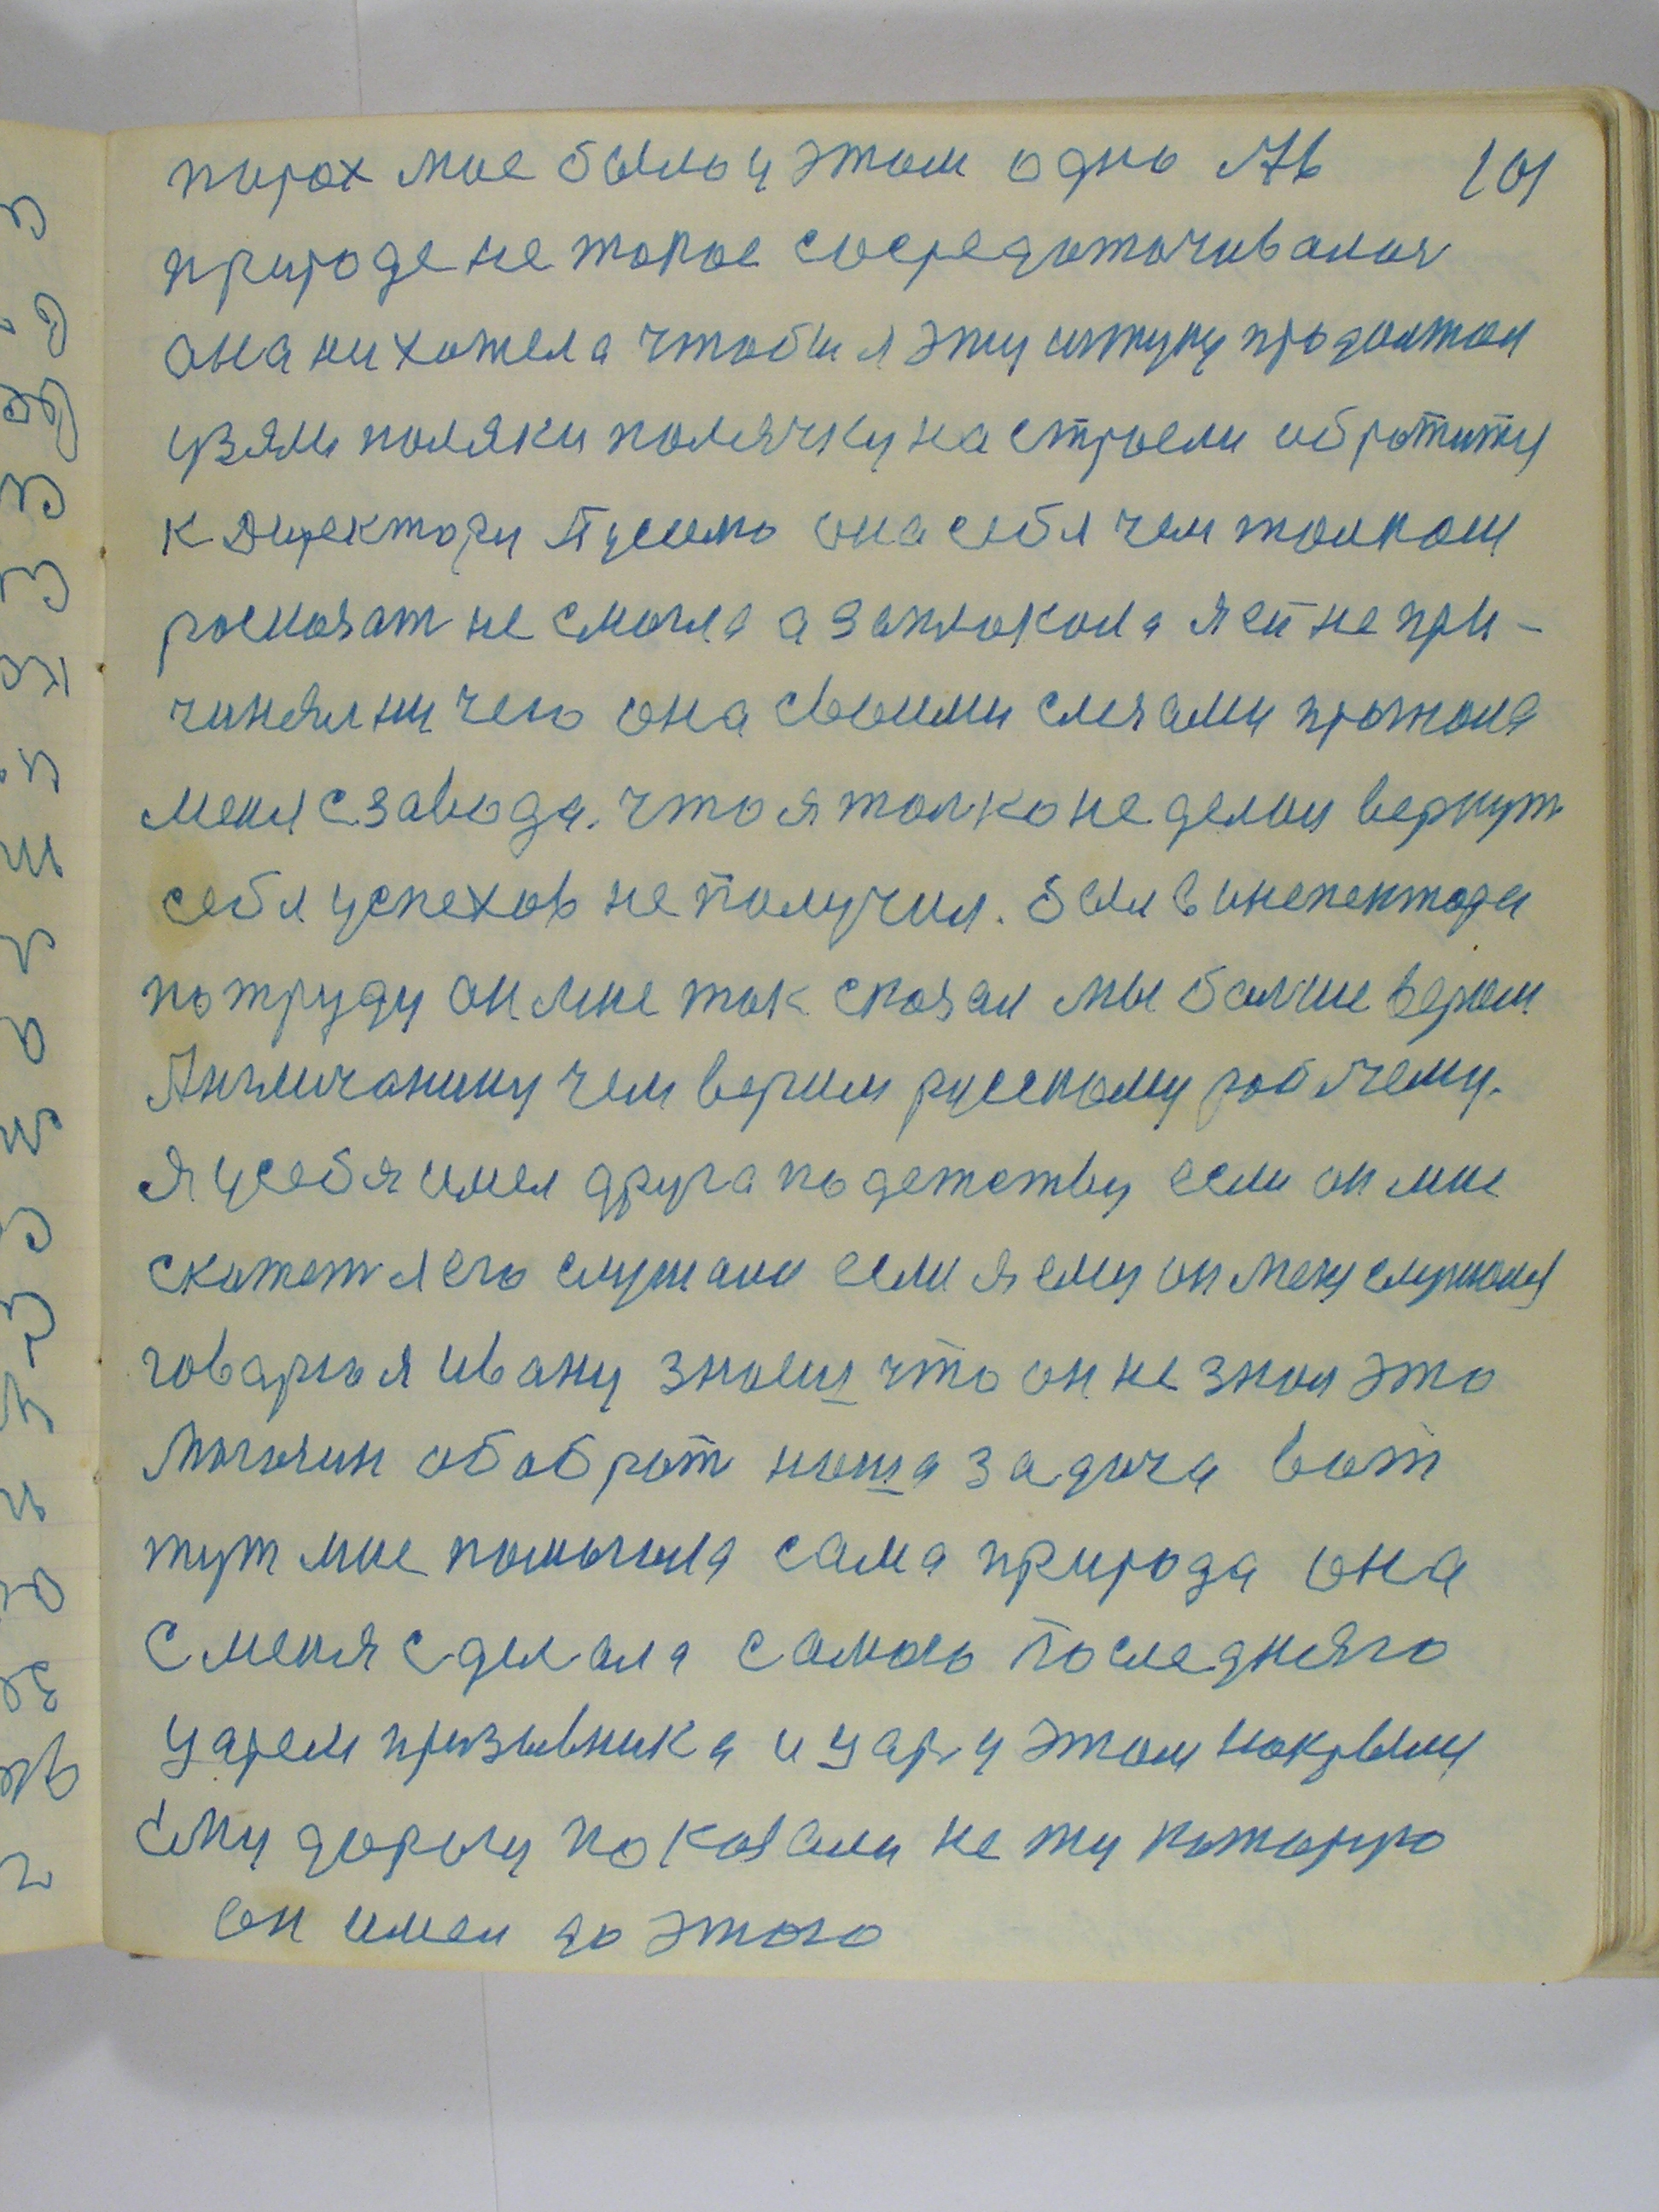 пирох мое было у этом одно Ав 101
природе не токое сосредоточивалоя
она ни хотела чтобы я эту штуку продолжал
узяли поляки полячку настроели обротитя
к Директору Тусило она себя чем толком
росказат не смогла а заплокола я ей не при-
чинял ни чего она своими слезами прогнола
меня с завода. что я толко не делал вернут
себя успехов не получил. был в инспектора
по труду он мне так сказал мы болше верим
Англичанину чем верим рускому робочему.
Я у себя имел друга по детству если он мне
скажет я его слушаю если я ему он мену слушоя
говарю я Ивану знаеш что он не зная это
Могозин обоброт наша задача вот
тут мне помогила сама природа она
с меня сделала самого последняго
царем призывника и царя у этом накрылы
ему дорогу показали не ту которую
он имел до этого